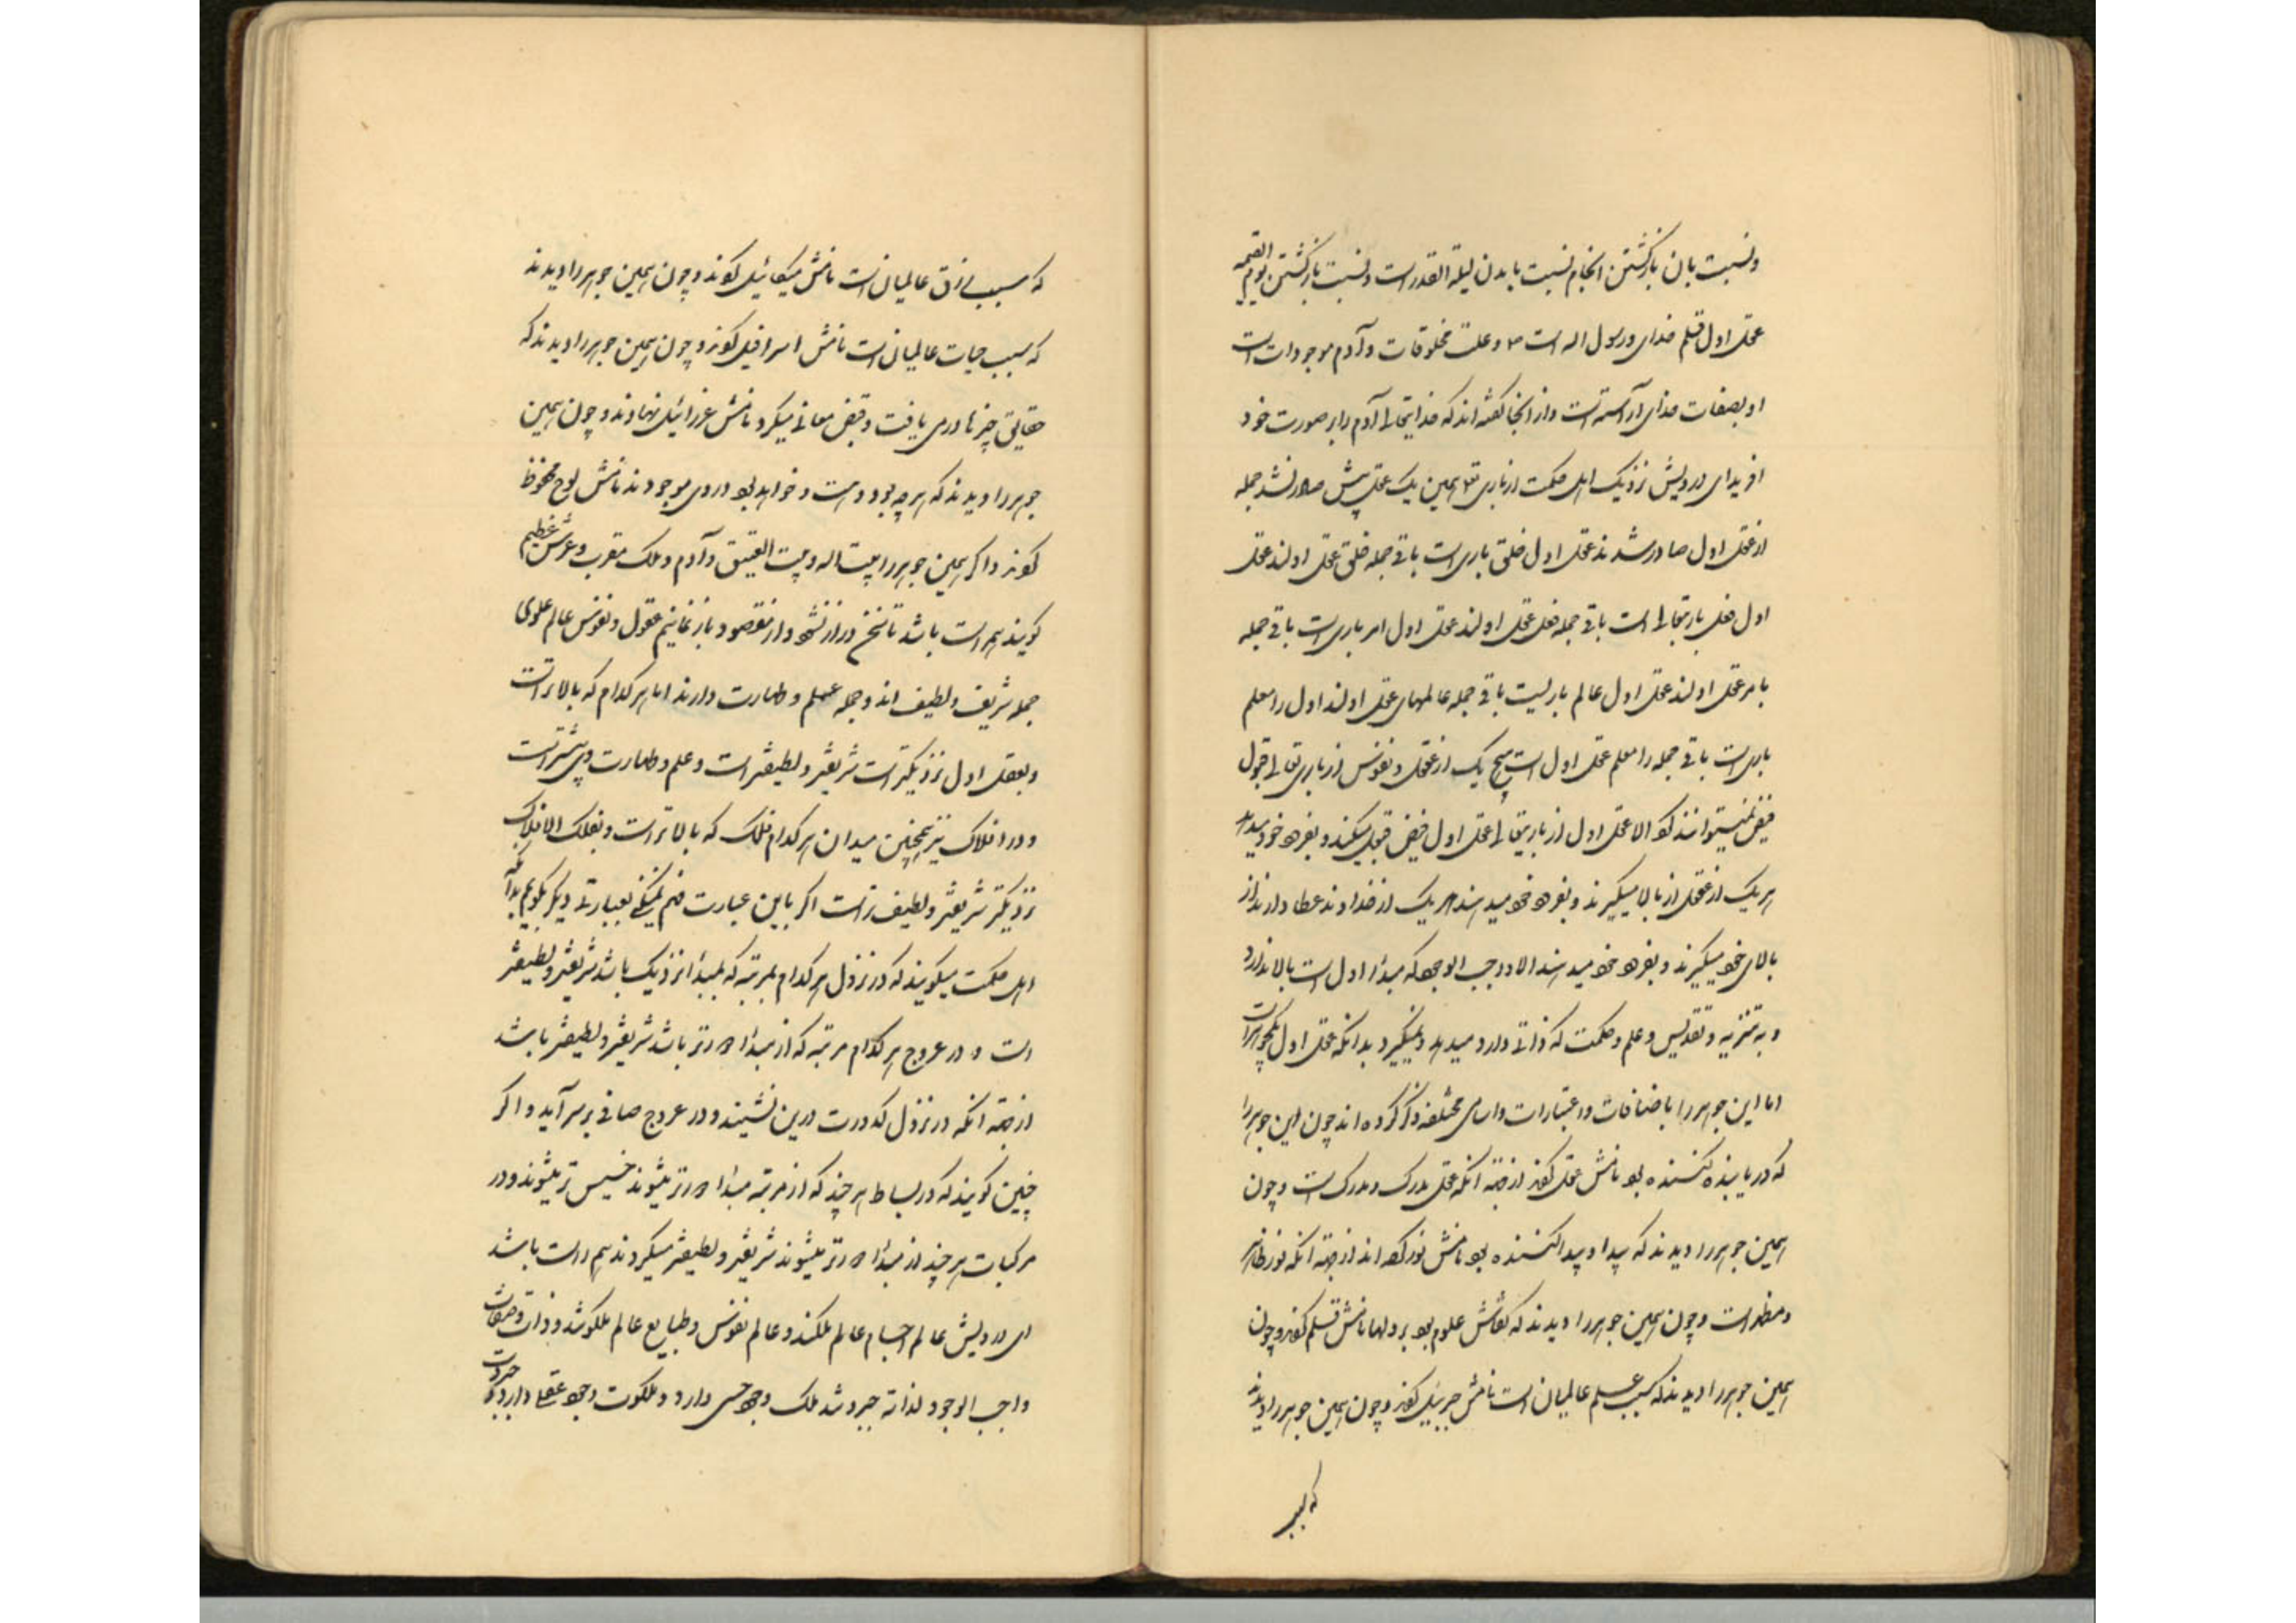 ونسبت بان بازگشتن انجام نسبت بامدن لیلة القدر است ونسبت بازگشتن یوم القیمه
عقل اول قلم خدای ورسول اله است و علت مخلوقات و آدم موجودات است
او بصفات خدای آراسته است و از اینجا گفته اند که خدایتعالی آدم را بر صورت خود
افرید ای درویش نزدیک اهل حکمت از باری تع همین یک عقل بیش صادر نشد جمله
از عقل اول صادر شدند عقل اول خلق باری است باقی جمله خلق عقل اولند عقل
اول فعل باریتعالی است باقی جمله فعل عقل اولند عقل اول امر باری است باقی جمله
بامر عقل اولند عقل اول عالم باریست باقی جمله عالمهای عقل اولند اول را معلم
باری است باقی جمله را معلم عقل اول است هیچ یک از عقول و نفوس از باری تعالی قبول
فیض نمیتوانند کرد الا عقل اول از باریتعالی عقل اول فیض قبول میکند و بفرود خود میدهد
هر یک از عقول از بالا میگیرند و بفرود خود میدهند هر یک از خداوند عطا دارند از
بالای خود میگیرند و بفرود خود میدهند الا واجب الوجود که مبدأ اول است بالا ندارد
و به تنزیه و تقدیس و علم و حکمت که ذاتی دارد میدهد و نمیگیرد بدانکه عقل اول یکجوهر است
اما این جوهر را باضافات و اعتبارات و اسامی مختلفه ذکر کرده اند چون این جوهر را
که دریابنده کننده بود نامش عقل کفتند از جهة آنکه عقل مدرک و مدرک است و چون
همین جوهر را دیدند که پیدا و پیدا کننده بود نامش نور کرده اند از جهة آنکه نور ظاهر
و مظهر است و چون همین جوهر را دیدند که نقاش علوم بود بر دلها نامش قلم کفتند و چون
همین جوهر را دیدند که سبب علم عالمیان است نامش جبرئیل کفتند و چون همین جوهر را دیدند
که سبب
که سبب رزق عالمیان است نامش میکائیل کفتند و چون همین جوهر را دیدند
که سبب حیات عالمیان است نامش اسرافیل کفتند و چون همین جوهر را دیدند که
حقایق چیزها در می یافت و قبض معانی میکرد نامش عزرائیل نهادند و چون همین
جوهر را دیدند که هر چه بود و هست و خواهد بود در وی موجودند نامش لوح محفوظ
کفتند و اکر همین جوهر را بیت اله و بیت العتیق و آدم و ملک مقرب و عرش عظیم
کویند هم راست باشد تا سخن دراز نشود و از مقصود باز نمانیم عقول و نفوس عالم علوی
جمله شریف و لطیف اند و جمله علم و طهارت دارند اما هر کدام که بالاتر است
و بعقل اول نزدیکتر است شریفتر و لطیفتر است و علم و طهارت وی بیشتر است
و در افلاک نیز همچنین میدان هر کدام فلک که بالاتر است و بفلک الافلاک
نزدیکتر شریفتر و لطیف تر است اکر باین عبارت فهم نمیکنی بعبارتی دیکر بکویم بدانکه
اهل حکمت میکویند که در نزول هر کدام بمرتبه که بمبدأ نزدیک باشد شریفتر و لطیفتر
است و در عروج هر کدام مرتبه که از مبدأ دورتر باشد شریفتر و لطیفتر باشد
از جهة آنکه در نزول کدورت در بن نشیند و در عروج صافی بر سر آید و اکر
چنین کویند که در بسایط هر چند که از مرتبه مبدأ دورتر میشوند خسیس تر میشوند و در
مرکبات هر چند از مبدأ دورتر میشوند شریفتر و لطیفتر میکردند هم راست باشد
ای درویش عالم اجسام عالم ملکند و عالم نفوس و طبایع عالم ملکوتند و ذات و صفات
واجب الوجود لذاته جبروتند ملک وجود حسی دارد و ملکوت وجود عقلی دارد و جبروت